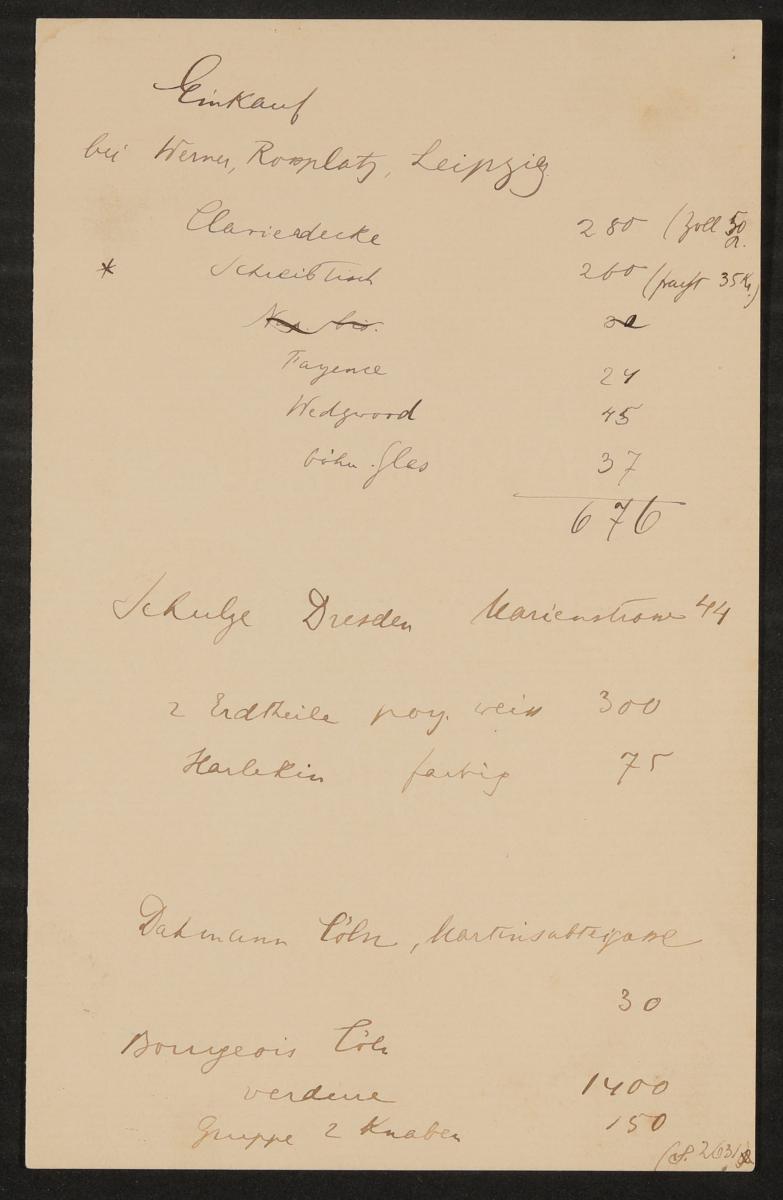 Einkauf
bei Werner, Rossplatz, Leipzig
Clavierdecke 280 (Zoll 50
* Schreibtisch 260 (fracht 35 Kr.)
30
Fayence 24
Wedgwood 45
böhm. Glas 37
676
Schulze Dresden Marienstrasse 44
2 Erdtheile weiss 300
Harlekin farbig 75
Dahmann Cöln, Martinsabteigasse
30
Bourgeois Cöln
verdure 1400
Gruppe 2 Knaben 150
(S. 2631